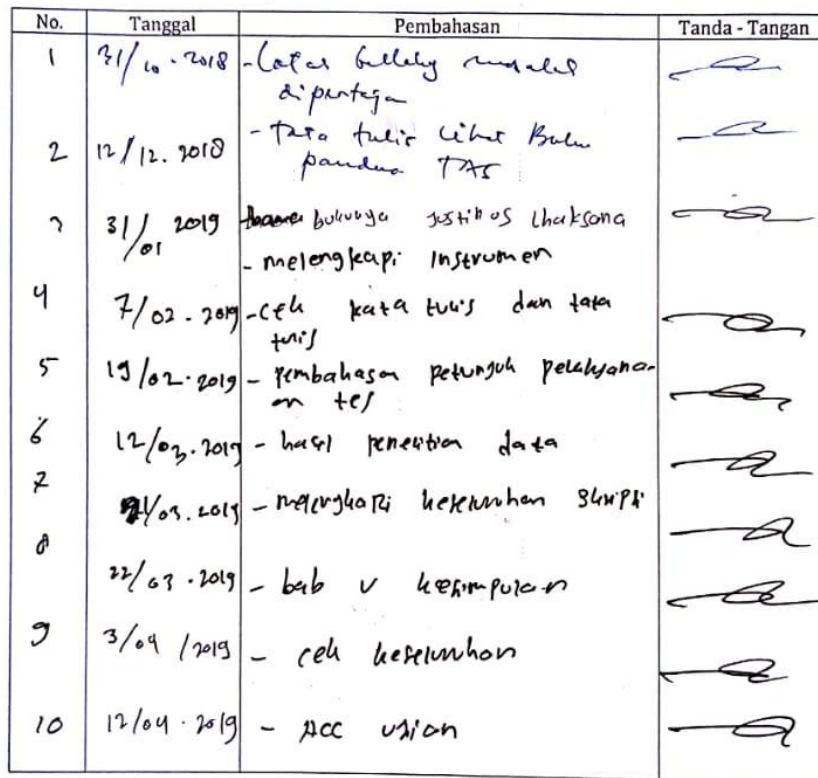 No. Tanggal Pembahasan Tanda - Tangan
1 31/10 . 2018 - Latar belakang masalah
dipertegas
2 12/12 . 2018 - Tata tulis lihat Buku
panduan TAS
3 31/01 2019 bukunya Justinus Lhaksana
- melengkapi Instrumen
4 7/02 . 2019 - cek kata tulis dan tata
tulis
5 19/02 . 2019 - pembahasan petunjuk
tes
6 12/03 . 2019 - hasil penelitian data
7 21/03 . 2019 - melengkapi keseluruhan skripsi
8 22/03 . 2019 - bab V kesimpulan
9 3/04 /2019 - cek keseluruhan
10 12/04 . 2019 - Acc ujian